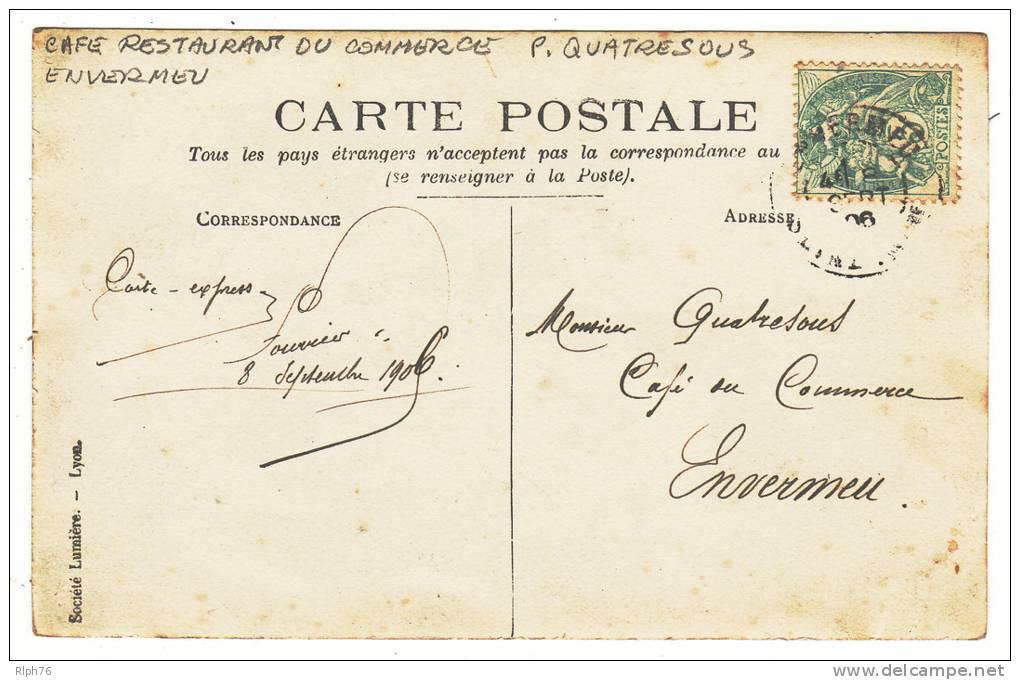 CAFE RESTAURANT DU COMMERCE P. QUATRESOUS
ENVERMEU
CARTE POSTALE
Tous les pays étrangers n'acceptent pas la correspondance au
(se renseigner à la Poste).
CORRESPONDANCE
ADRESSE
POSTES
SEPT
06
INF
Carte-express
Souvenir
8 Septembre 1906.
Monsieur Quatresous
Café du Commerce
Envermeu.
Société Lumière. - Lyon.
Rlph76
www.delcampe.net